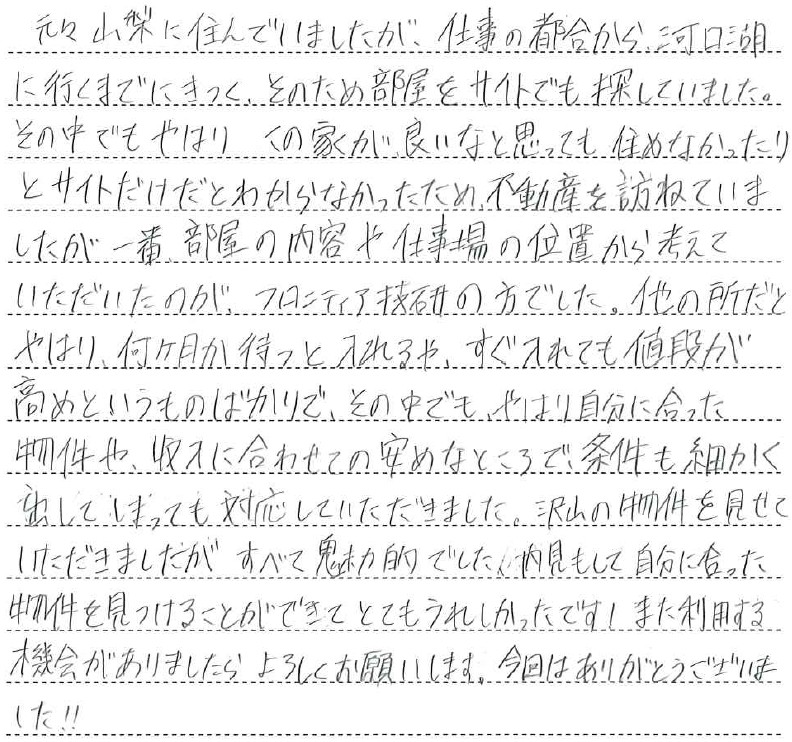 元々山梨に住んでいましたが、仕事の都合から、河口湖
に行くまでにきつく、そのため部屋をサイトでも探していました。
その中でもやはり この家が、良いなと思っても 住めなかったり
とサイトだけだとわからなかったため、不動産を訪ねていま
したが 一番、部屋の内容や仕事場の位置から考えて
いただいたのが、フロンティア技研の方でした。他の所だと
やはり、何ケ月か待つと入れるや、すぐ入れても値段が
高めというものばかりで、その中でも、やはり自分に合った
物件や、収入に合わせての安めなところで、条件も細かく
出してしまっても対応していただきました。沢山の物件を見せて
いただきましたが すべて魅力的でした、内見もして自分に合った
物件を見つけることができて とてもうれしかったです！また利用する
機会がありましたら よろしくお願いします。今回はありがとうございま
した!!